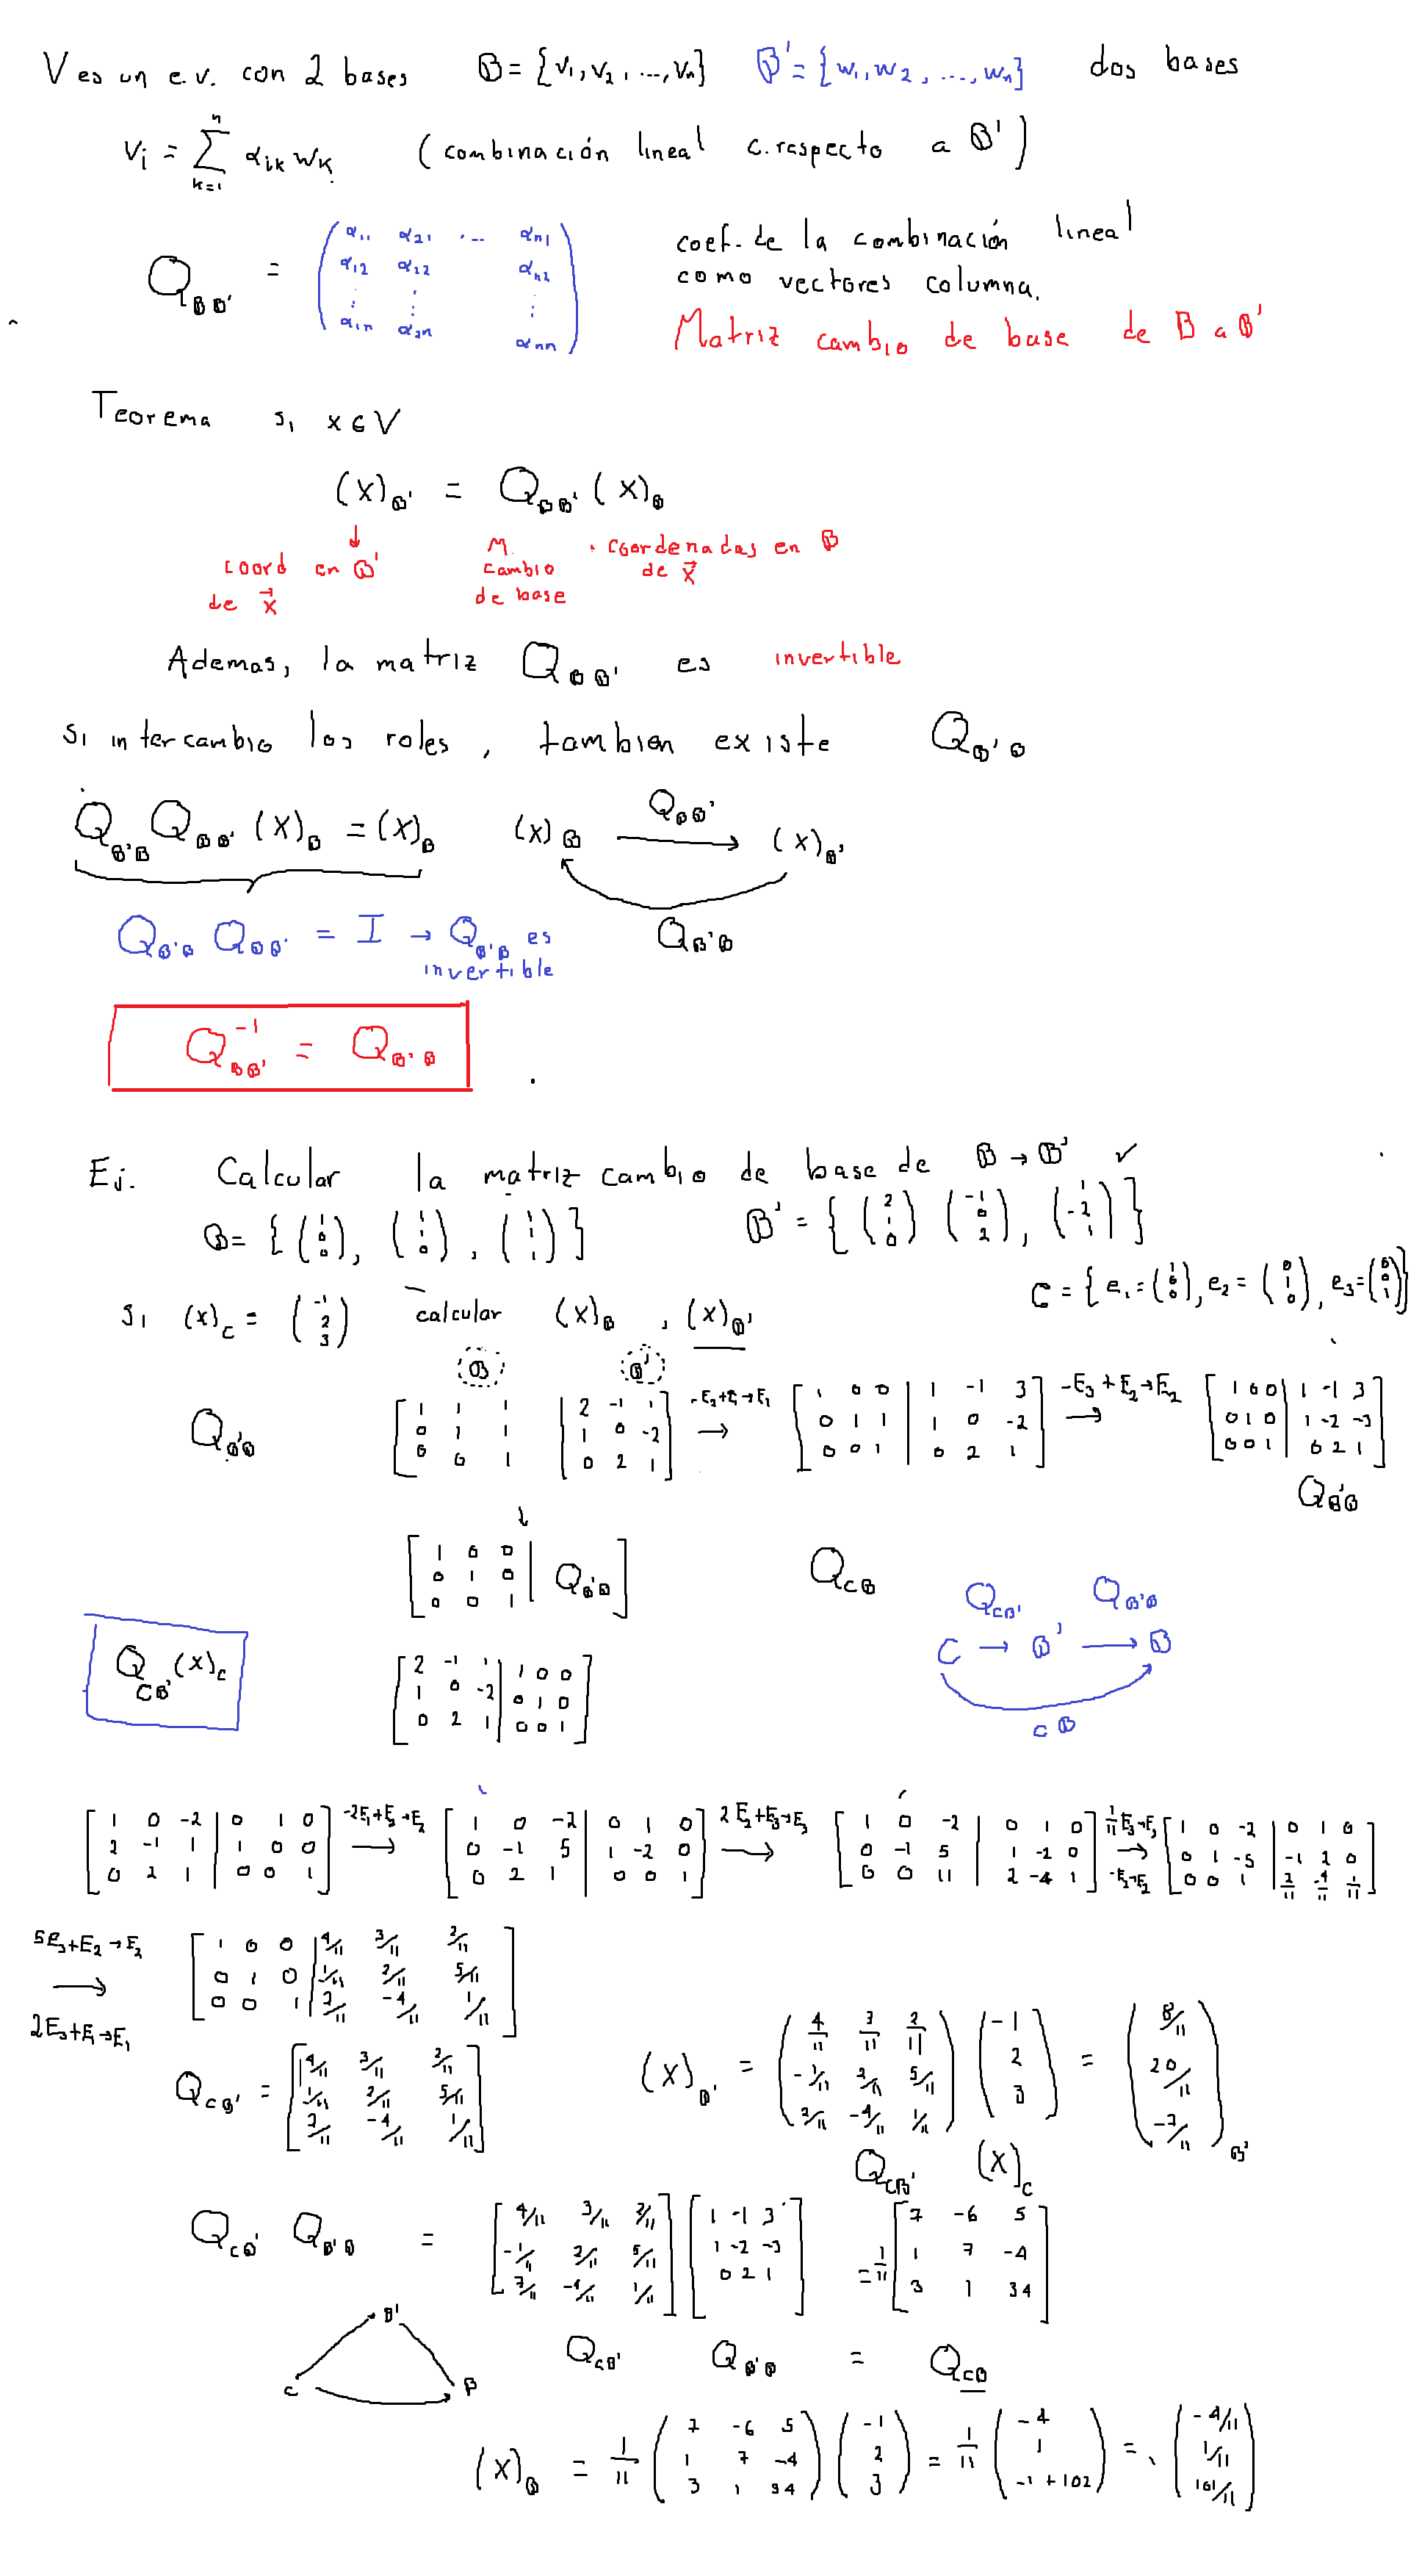 V es un e.v. con 2 bases 𝔹 = {v₁, v₂, ..., vₙ} 𝔹' = {w₁, w₂, ..., wₙ} dos bases
vᵢ = Σₖ₌₁ⁿ αᵢₖ wₖ. (combinación lineal c.respecto a 𝔹')
Q_𝔹𝔹' = ( α₁₁ α₂₁ ... αₙ₁ ; α₁₂ α₂₂ αₙ₂ ; ⋮ ⋮ ⋮ ; α₁ₙ α₂ₙ αₙₙ )
coef. de la combinación lineal
como vectores columna.
Matriz cambio de base de 𝔹 a 𝔹'
Teorema si x ∈ V
(x)_𝔹' = Q_𝔹𝔹' (x)_𝔹
↓
coord en 𝔹'
de x⃗
M.
cambio
de base
· coordenadas en 𝔹
de x⃗
Ademas, la matriz Q_𝔹𝔹' es invertible
Si intercambio los roles, tambien existe Q_𝔹'𝔹
Q_𝔹'𝔹 Q_𝔹𝔹' (x)_𝔹 = (x)_𝔹 (x)_𝔹 → (x)_𝔹'
Q_𝔹𝔹'
Q_𝔹'𝔹
Q_𝔹'𝔹 Q_𝔹𝔹' = I → Q_𝔹'𝔹 es
invertible
Q_𝔹𝔹'⁻¹ = Q_𝔹'𝔹
Ej. Calcular la matriz cambio de base de 𝔹 → 𝔹' ✓
𝔹 = { (1 ; 0 ; 0), (1 ; 1 ; 0), (1 ; 1 ; 1) } 𝔹' = { (2 ; 1 ; 0) (-1 ; 0 ; 2), (1 ; -2 ; 1) }
C = { e₁ = (1 ; 0 ; 0), e₂ = (0 ; 1 ; 0), e₃ = (0 ; 0 ; 1) }
Si (x)_C = (-1 ; 2 ; 3) calcular (x)_𝔹, (x)_𝔹'
𝔹 𝔹'
Q_𝔹'𝔹 [ 1 1 1 | 2 -1 1 ; 0 1 1 | 1 0 -2 ; 0 0 1 | 0 2 1 ] -E₂+E₁→E₁ → [ 1 0 0 | 1 -1 3 ; 0 1 1 | 1 0 -2 ; 0 0 1 | 0 2 1 ] -E₃+E₂→E₂ → [ 1 0 0 | 1 -1 3 ; 0 1 0 | 1 -2 -3 ; 0 0 1 | 0 2 1 ]
Q_𝔹'𝔹
↓
[ 1 0 0 ; 0 1 0 ; 0 0 1 | Q_𝔹'𝔹 ] Q_C𝔹
Q_C𝔹' Q_𝔹'𝔹
C → 𝔹' → 𝔹
C𝔹
Q_C𝔹' (x)_C
[ 2 -1 1 | 1 0 0 ; 1 0 -2 | 0 1 0 ; 0 2 1 | 0 0 1 ]
[ 1 0 -2 | 0 1 0 ; 2 -1 1 | 1 0 0 ; 0 2 1 | 0 0 1 ] -2E₁+E₂→E₂ → [ 1 0 -2 | 0 1 0 ; 0 -1 5 | 1 -2 0 ; 0 2 1 | 0 0 1 ] 2E₂+E₃→E₃ → [ 1 0 -2 | 0 1 0 ; 0 -1 5 | 1 -2 0 ; 0 0 11 | 2 -4 1 ] 1/11 E₃→E₃ → -E₂→E₂ [ 1 0 -2 | 0 1 0 ; 0 1 -5 | -1 2 0 ; 0 0 1 | 2/11 -4/11 1/11 ]
5E₃+E₂→E₂ → 2E₃+E₁→E₁ [ 1 0 0 | 4/11 3/11 2/11 ; 0 1 0 | -1/11 2/11 5/11 ; 0 0 1 | 2/11 -4/11 1/11 ]
Q_C𝔹' = [ 4/11 3/11 2/11 ; -1/11 2/11 5/11 ; 2/11 -4/11 1/11 ]
(x)_𝔹' = ( 4/11 3/11 2/11 ; -1/11 2/11 5/11 ; 2/11 -4/11 1/11 ) ( -1 ; 2 ; 3 ) = ( 8/11 ; 20/11 ; -7/11 )_𝔹'
Q_C𝔹' (x)_C
Q_C𝔹' Q_𝔹'𝔹 = [ 4/11 3/11 2/11 ; -1/11 2/11 5/11 ; 2/11 -4/11 1/11 ] [ 1 -1 3 ; 1 -2 -3 ; 0 2 1 ] = 1/11 [ 7 -6 5 ; 1 7 -4 ; 3 1 34 ]
𝔹'
C 𝔹
Q_C𝔹' Q_𝔹'𝔹 = Q_C𝔹
(x)_𝔹 = 1/11 ( 7 -6 5 ; 1 7 -4 ; 3 1 34 ) ( -1 ; 2 ; 3 ) = 1/11 ( -4 ; 1 ; -1+102 ) = ( -4/11 ; 1/11 ; 101/11 )